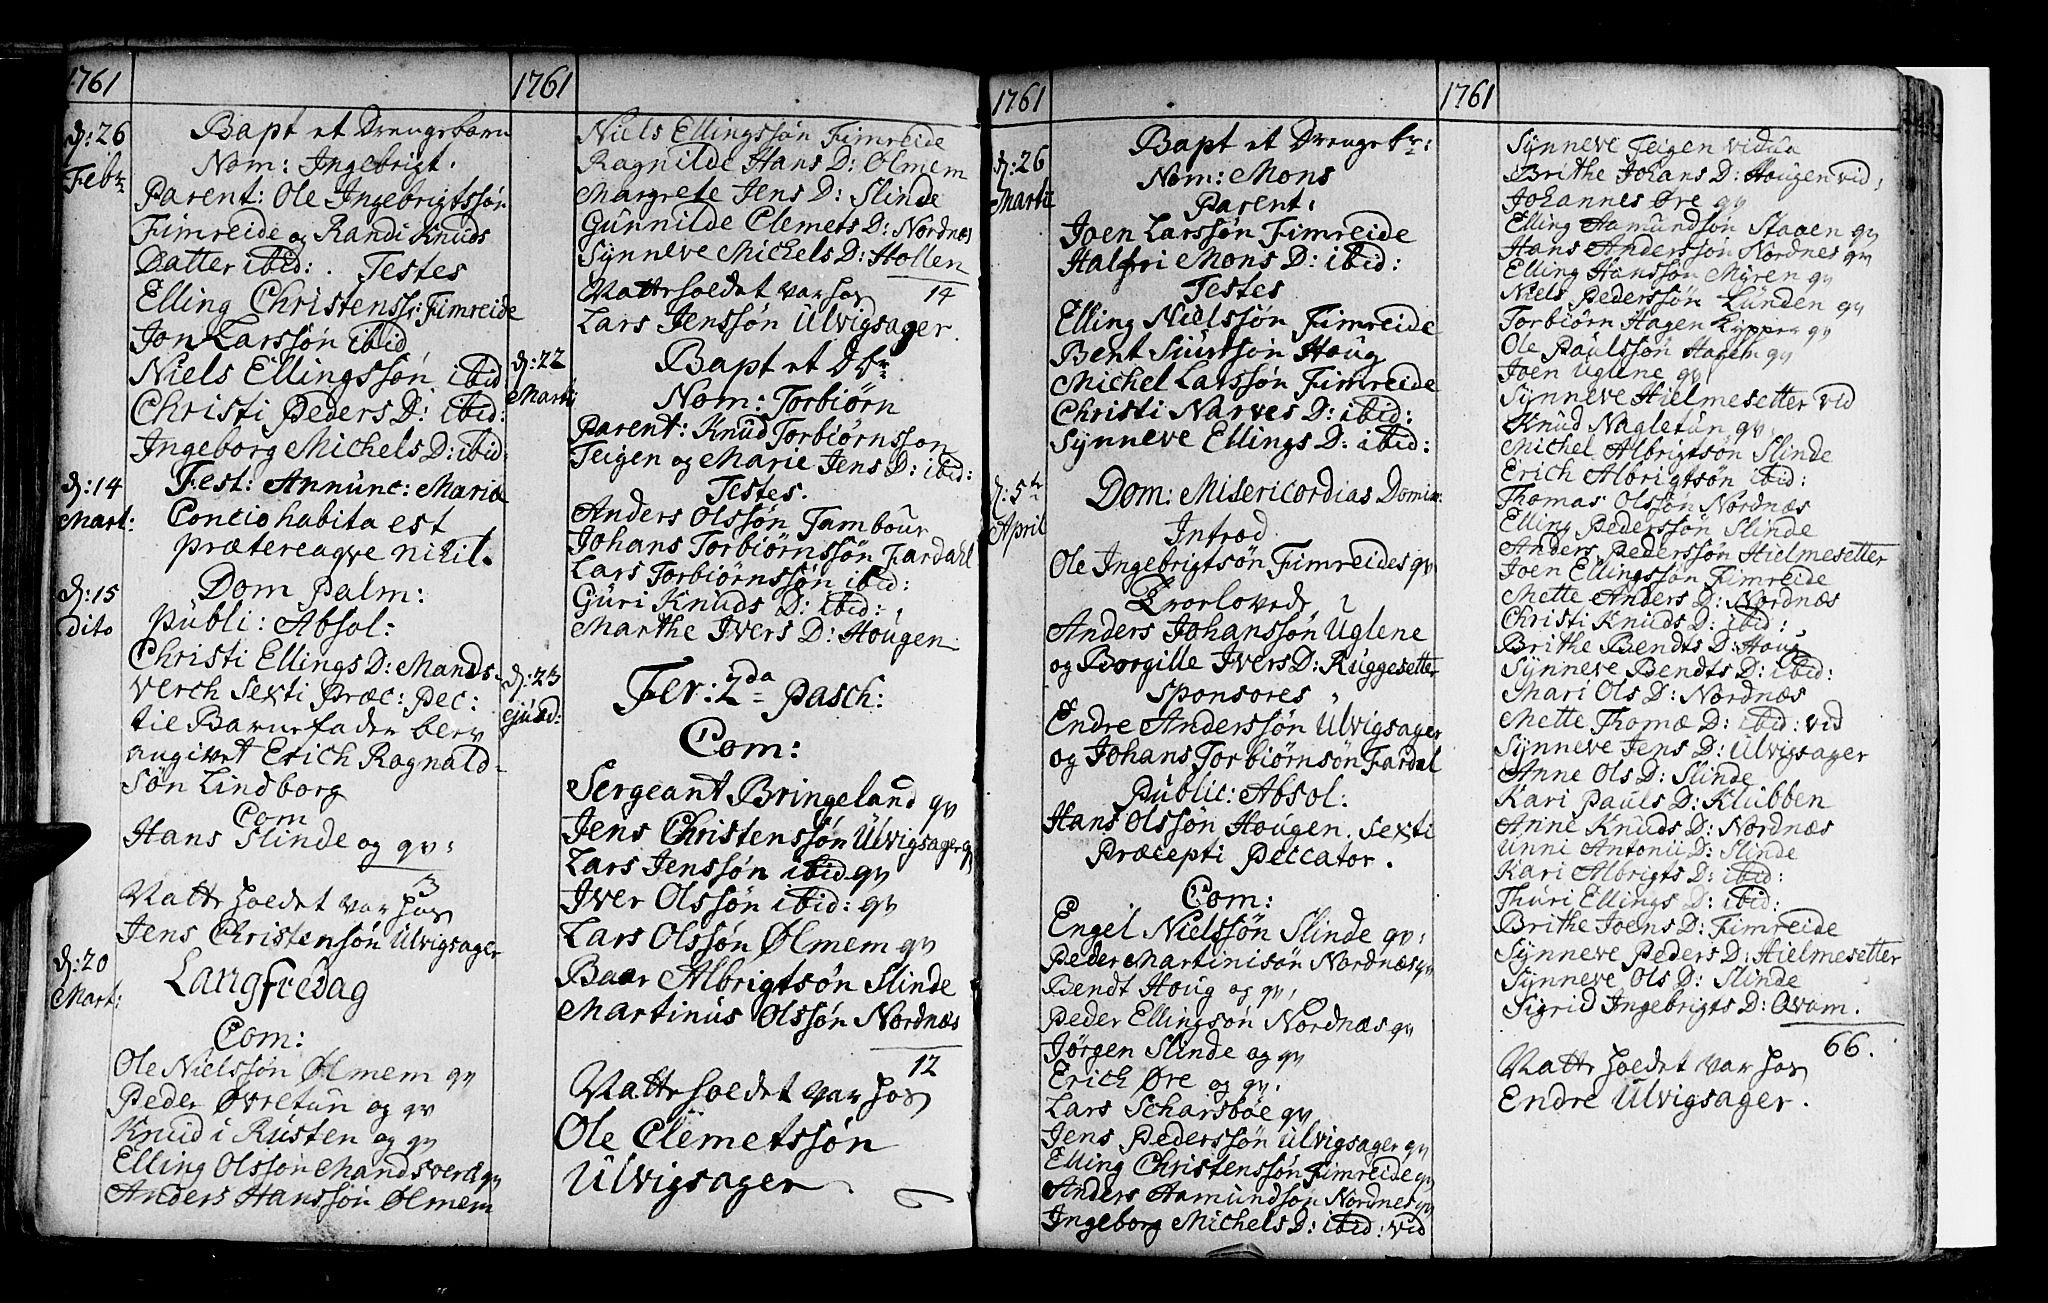 1761
d: 26
Febr
Bapt et Drengebarn
Nom: Ingebrigt.
Parent: Ole Ingebrigtssøn
Fimreide og Randi Knuds
Datter ibid: . Testes
Elling Christenss: Fimreide
Jon Larssøn ibid
Niels Ellingssøn ibid
Christi Peders D: ibid:
Ingeborg Michels D: ibid:
d: 14
Mart:
Fest: Annunc: Mariæ
Concio habita est
prætereaqve nihil.
d: 15
dito
Dom Palm:
Publi: Absol:
Christi Ellings D: Mands-
verch Sexti Præc: Pec:
til Barnefader blev
angivet Erich Ragnald-
søn Lindborg
Com
Hans Slinde og qv:
3
Natteholdet var hos
Jens Christensøn Ulvigsager
d: 20
Mart:
Langfredag
Com:
Ole Nielssøn Ølmem qv
Peder Øvretun og qv
Knud i Rusten og qv
Elling Olssøn Mandsverch qv
Anders Hanssøn Ølmem
1761
Niels Ellingssøn Fimreide
Ragnilde Hans D: Olmem
Margrete Jens D: Slinde
Gunnilde Clemets D: Nordnæs
Synneve Michels D: Hollen
14
Natteholdet var hos
Lars Jenssøn Ulvigsager.
d: 22
Martii
Bapt et Dbr
Nom: Torbiørn
Parent: Knud Torbiørnssøn
Teigen og Marie Jens D: ibid:
Testes.
Anders Olssøn Tambour
Johans Torbiørnssøn Fardahl
Lars Torbiørnssøn ibid:
Guri Knuds D: ibid:
Marthe Ivers D: Hougen
d: 23
ejusd:
Fer: 2da Pasch:
Com:
Sergeant Bringeland qv
Jens Christenssøn Ulvigsager qv
Lars Jenssøn ibid qv
Iver Olssøn ibid: qv
Lars Olssøn Ølmem qv
Baar Albrigtsøn Slinde
Martinus Olssøn Nordnæs
12
Natteholdet var hos
Ole Clemetssøn
Ulvigsager
1761
d: 26
Martii
Bapt et Drengebr:
Nom: Mons
Parent:
Joen Larssøn Fimreide
Halfri Mons D: ibid:
Testes
Elling Nielssøn Fimreide
Bent Siurssøn Houg
Michel Larssøn Fimreide
Christi Narves D: ibid:
Synneve Ellings D: ibid:
d: 5te
April
Dom: Misericordias Domin:
Introd
Ole Ingebrigtsøn Fimreides qv
Trorlovede
Anders Johanssøn Uglene
og Borgille Ivers D: Ruggesetter
Sponsores
Endre Anderssøn Ulvigsager
og Johans Torbiørnsøn Fardal
Public: Absol:
Hans Olssøn Hougen. Sexti
Præcepti Peccator.
Com:
Engel Nielssøn Slinde qv:
Peder Martinisøn Nordnæs qv
Bendt Houg og qv:
Peder Ellingsøn Nordnæs qv
Jørgen Slinde og qv
Erich Øre og qv.
Lars Scharsbøe qv
Jens Pederssøn Ulvigsager qv
Elling Christenssøn Fimreide qv
Anders Aamundsøn Nordnes qv
Ingeborg Michels D: ibid: vid
1761
Synneve Teigen vidua
Brithe Johans D: Hougen vid:
Johannes Øre qv
Elling Aamundsøn Staaen qv
Hans Anderssøn Nordnes qv
Elling Hanssøn Myren qv
Niels Pederssøn Lunden qv
Torbiørn Hagen Kyppen qv
Ole Paulssøn Hagen qv
Joen Uglene qv
Synneve Hielmesetter vid
Knud Nagletun qv
Michel Albrigtsøn Slinde
Erich Albrigtsøn ibid:
Thomas Olssøn Nordnæs
Elling Pederssøn Slinde
Anders Pederssøn Hielmesetter
Joen Ellingssøn Fimreide
Mette Anders D: Nordnæs
Christi Knuds D: ibid:
Brithe Bendts D: Houg
Synneve Bendts D: ibid:
Mari Ols D: Nordnæs
Mette Thomæ D: ibid: vid
Synneve Jens D: Ulvigsager
Anne Ols D: Slinde
Kari Pauls D: Klubben
Anne Knuds D: Nordnæs
Unni Antonii D: Slinde
Kari Albrigts D: ibid:
Thuri Ellings D: ibid:
Brithe Joens D: Fimreide
Synneve Peders D: Hielmesetter
Synneve Ols D: Slinde
Sigrid Ingebrigts D: Qvam.
66.
Natteholdet var hos
Endre Ulvigsager.